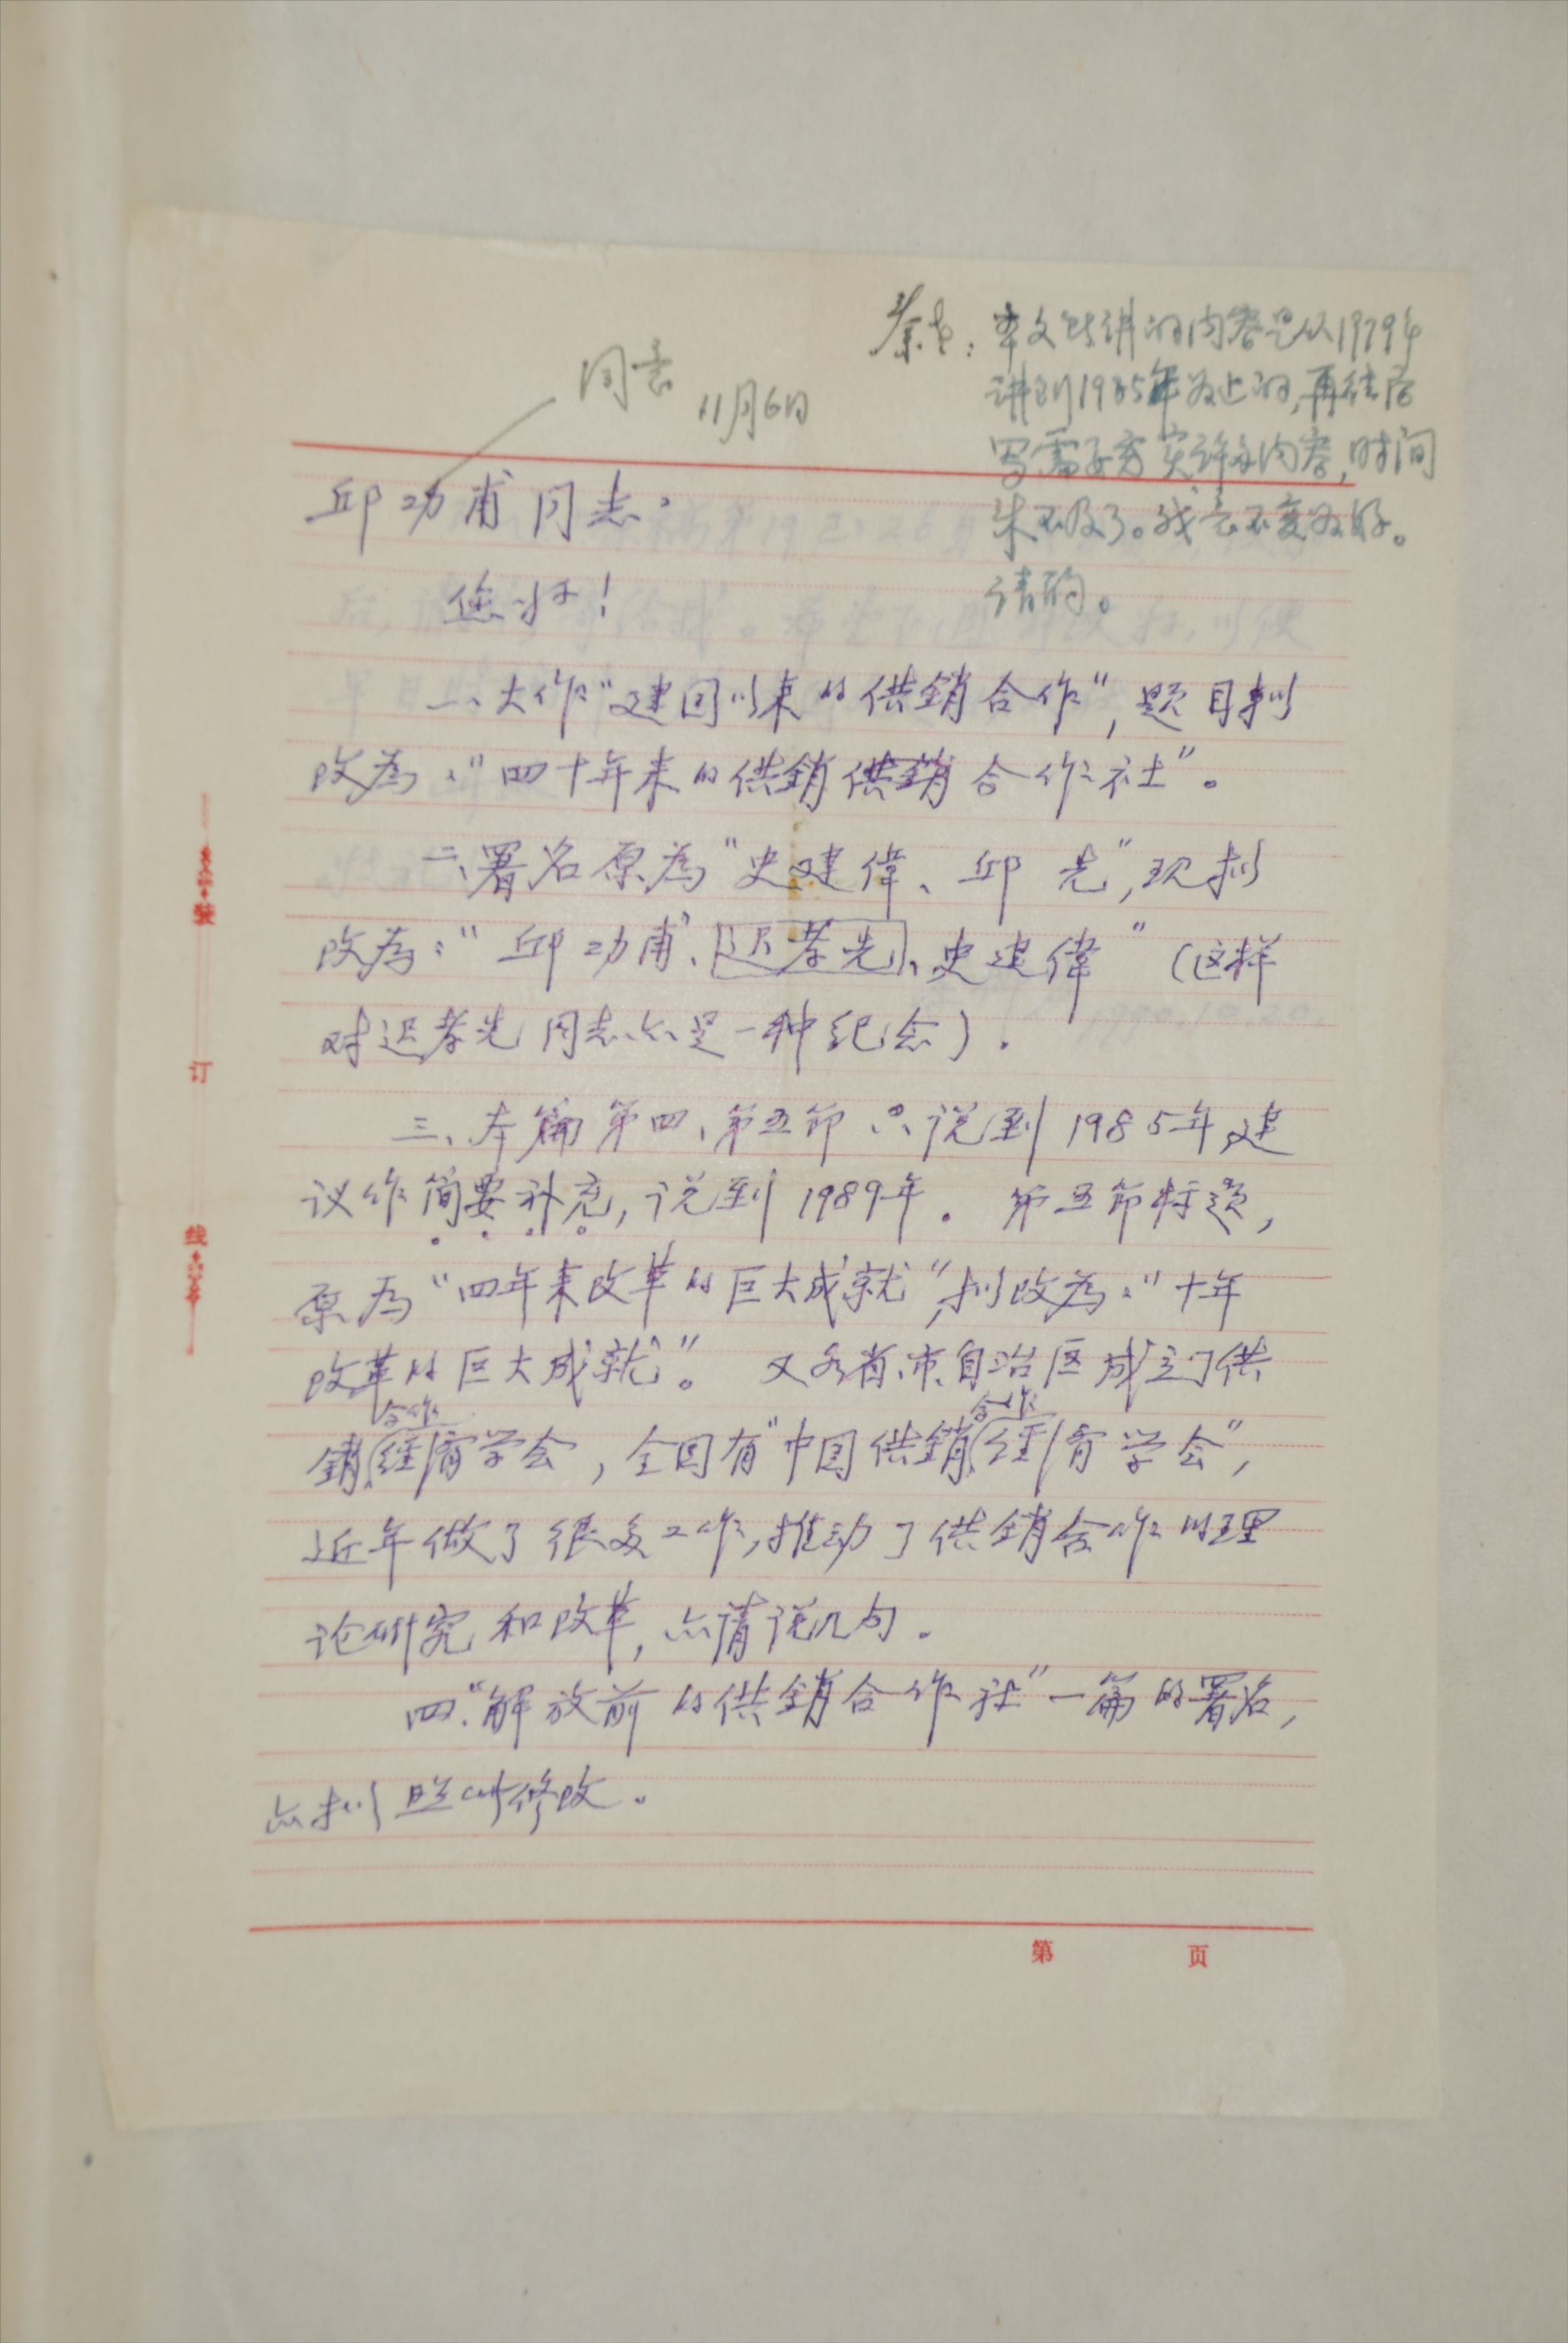 蔡老：本文所讲的内容是从1979年
讲到1985年为止的，再往后
写需要充实许多内容，时间
来不及了。我意不变为好。
请酌。
同意
11月6日
邱功甫同志：
您好！
一、大作“建国以来的供銷合作”，题目拟
改為：“四十年来的供銷供銷合作社”。
二、署名原為“史建偉、邱先”，现拟
改為：“邱功甫、迟孝先、史建偉”（这样
对迟孝先同志亦是一种纪念）.
三、本篇第四、第五节只说到1985年，建
议作简要补充，说到1989年。第五节标题，
原為“四年来改革的巨大成就”，拟改為：“十年
改革的巨大成就”。又各省、市、自治区成立了供
合作 合作
銷經濟学会，全国有“中国供銷經濟学会”，
近年做了很多工作，推动了供銷合作的理
论研究和改革，亦请说几句。
四、“解放前的供銷合作社”一篇的署名，
亦拟照此修改。
装
订
线
第 页